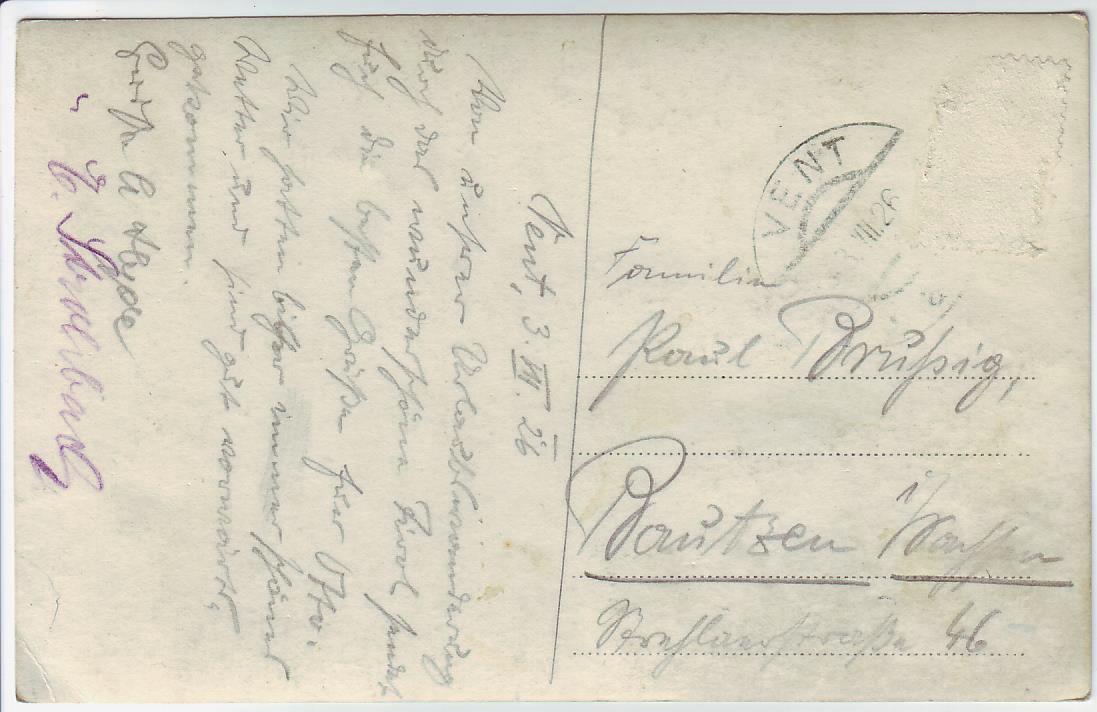 Vent, 3. VII. 26
Von unserer Urlaubswanderung
durch das wunderschöne Tirol sendet
Euch die besten Grüße Euer Otto.
Wir hatten bisher immer schönes
Wetter und sind gut vorwärts
gekommen.
VENT
VII.26
Familie
Paul Drußig,
Bautzen i/Sachsen
Strehlaerstraße 46